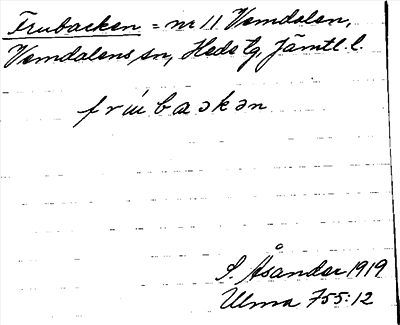 Frubacken = nr 11 Vemdalen,
Vemdalens sn, Hede tg, Jämtl. l.
frúbaəkən
S. Åsander 1919
Ulma 755:12